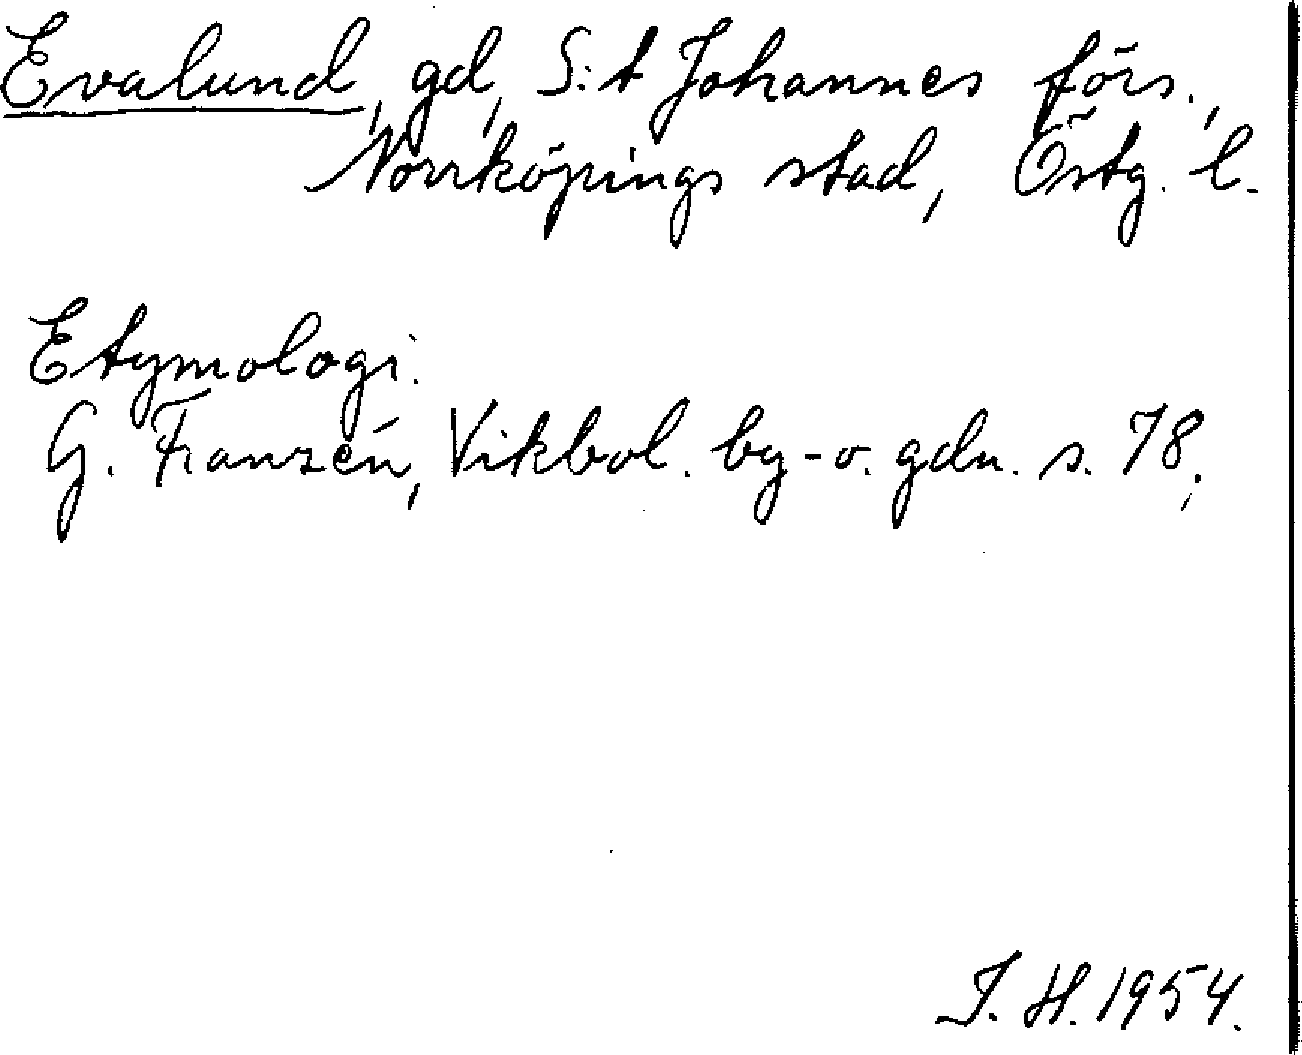 Evalund, gd, S:t Johannes förs.,
Norrköpings stad, Östg. l.
Etymologi.
G. Franzén, Vikbol. by- o. gdn. s. 78;
I. H. 1954.